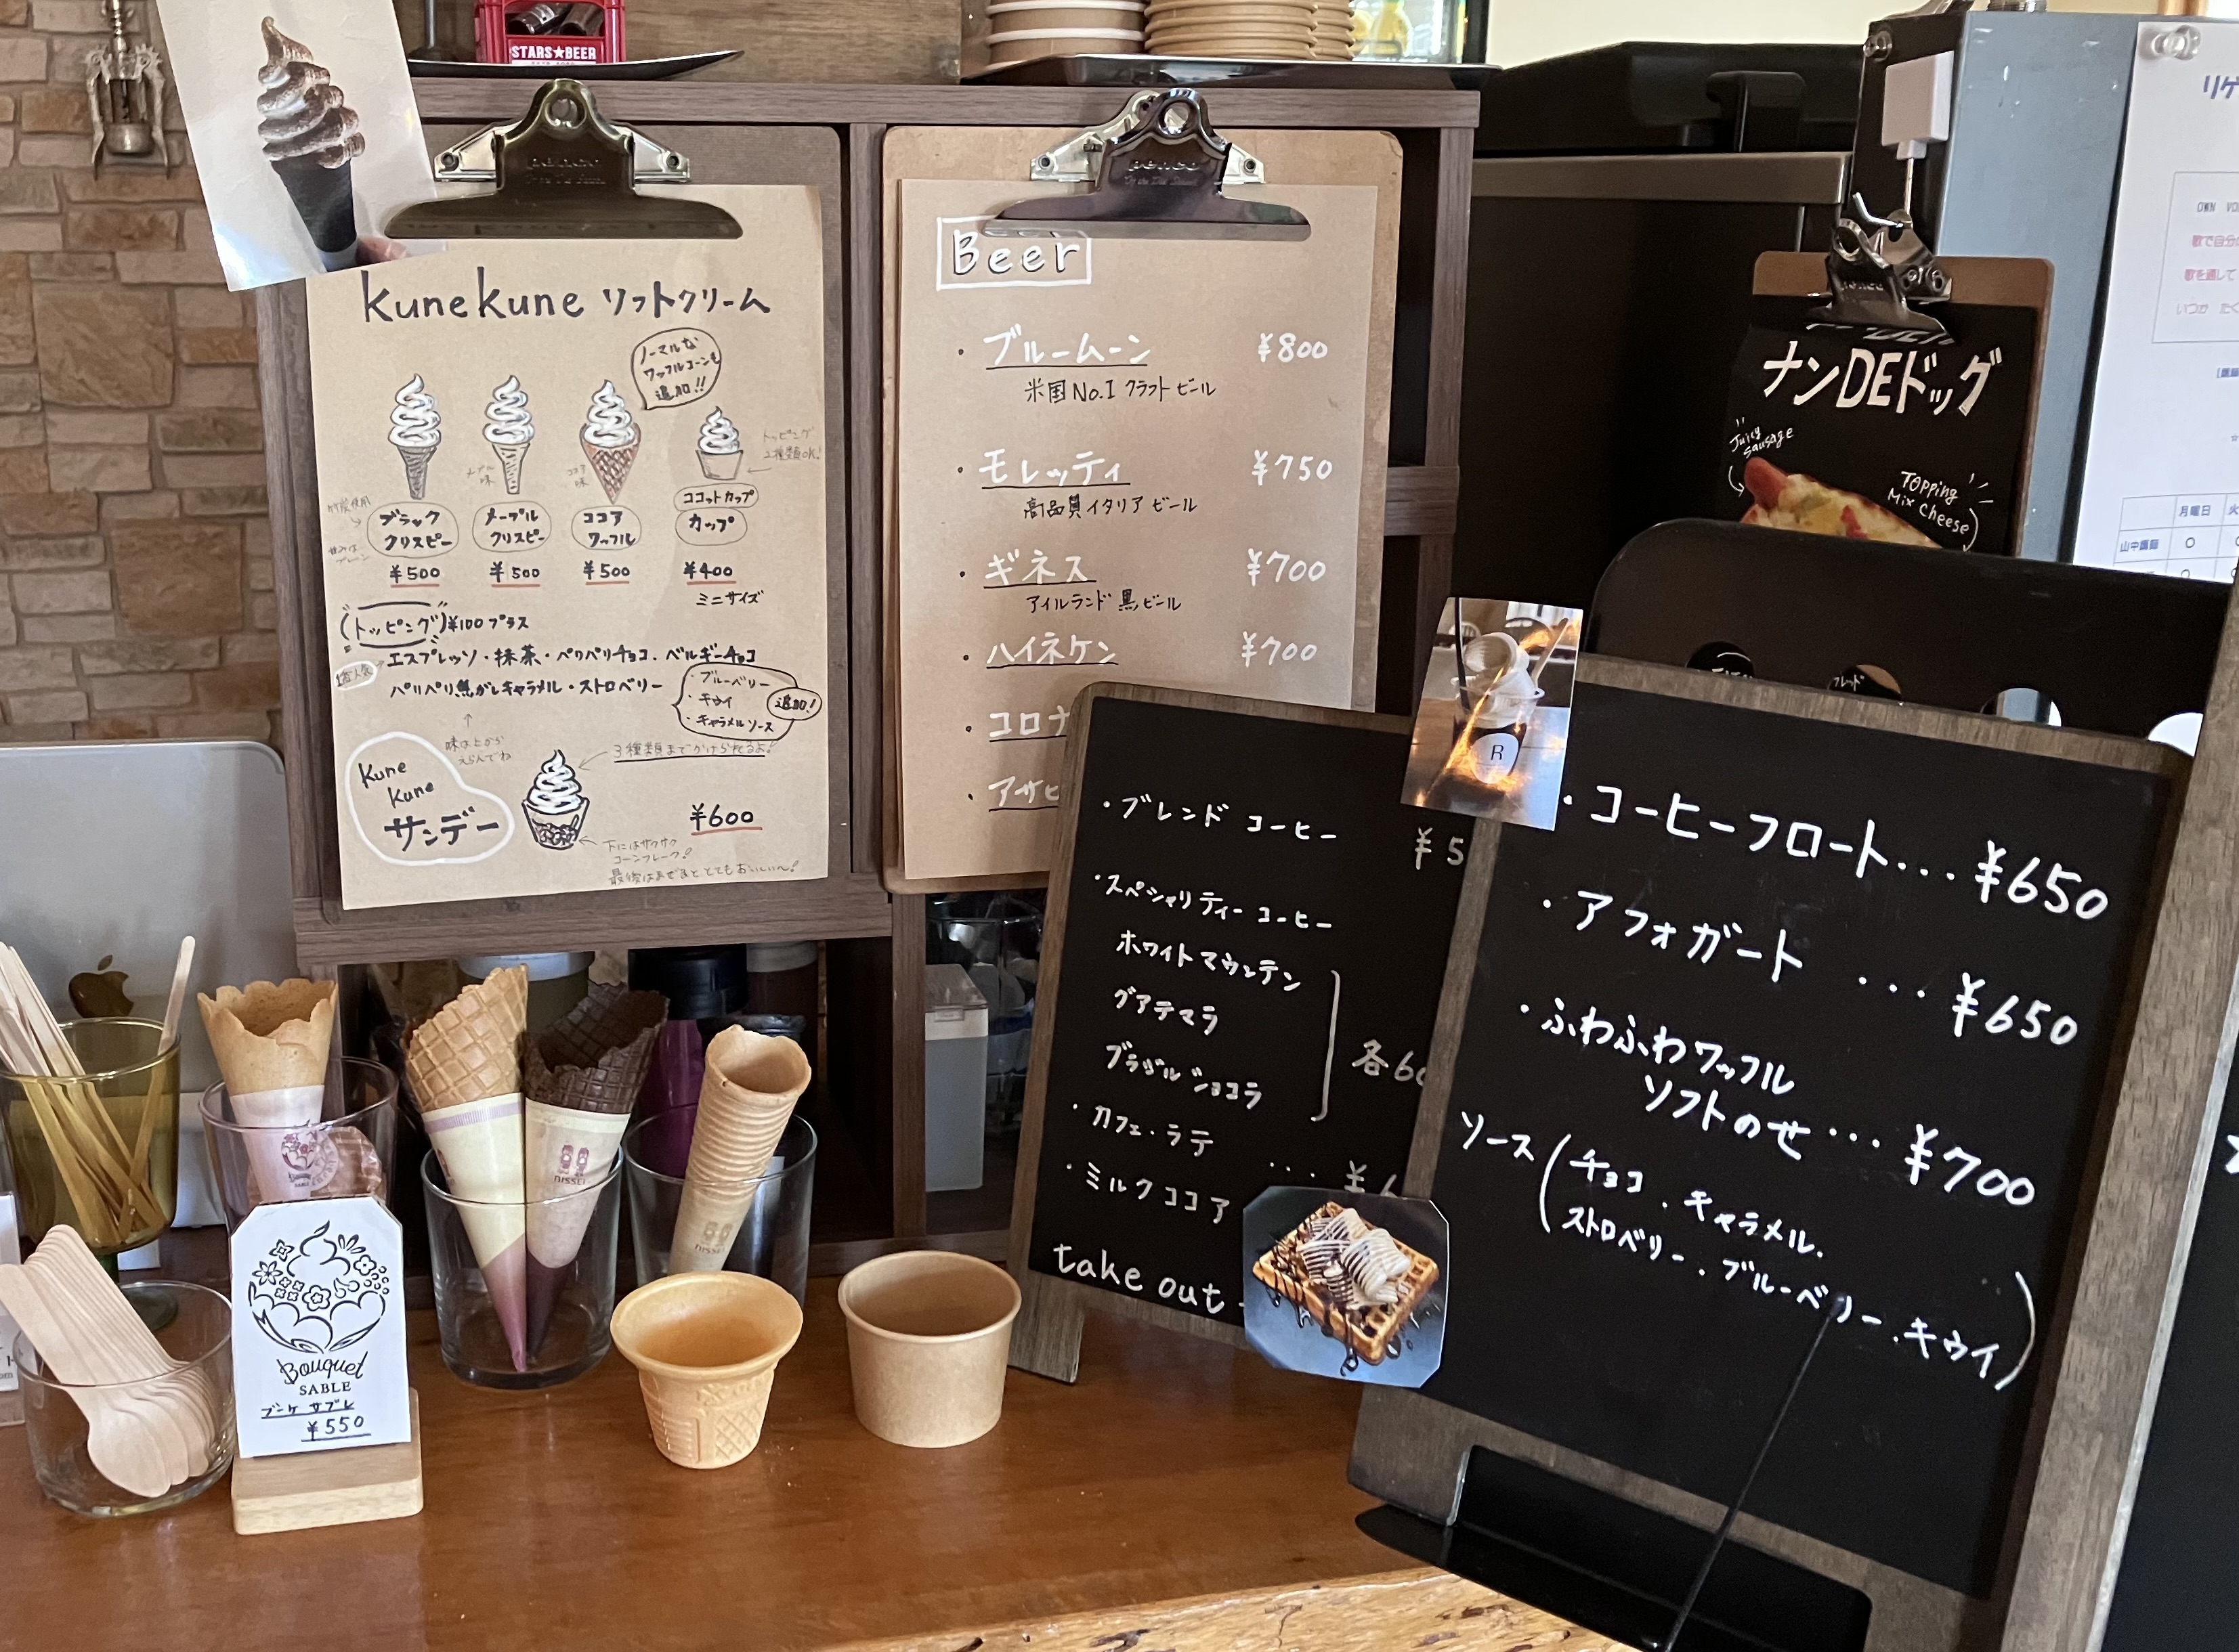 STARS★BEER
penco
kunekune ソフトクリーム
ノーマルな
ワッフルコーンも
追加!!
トッピング
2種類OK!
メープル
味
ココア
味
ブラック
クリスピー
メープル
クリスピー
ココア
ワッフル
ココットカップ
カップ
¥500
¥500
¥500
¥400
ミニサイズ
トッピング ¥100プラス
エスプレッソ・抹茶・パリパリチョコ・ベルギーチョコ
パリパリ焦がしキャラメル・ストロベリー
・ブルーベリー
・キウイ
・キャラメルソース
追加!
味は上から
えらんでね
3種類までかけられるよ!
Kune
kune
サンデー
¥600
下にはサクサク
コーンフレーク!
最後はまぜるととてもおいしい〜!
penco
Beer
・ブルームーン ¥800
米国No.1 クラフトビール
・モレッティ ¥750
高品質イタリアビール
・ギネス ¥700
アイルランド黒ビール
・ハイネケン ¥700
・コロナ
・アサヒ
ナンDEドッグ
Juicy
sausage
Topping
Mix Cheese
OWN
歌で自分
歌を通して
いつか たく
月曜日
山中
・ブレンド コーヒー ¥5
・スペシャリティー コーヒー
ホワイトマウンテン
グアテマラ
ブラジルショコラ
各60
・カフェ・ラテ
・・・ ¥6
・ミルクココア
take out
R
・コーヒーフロート... ¥650
・アフォガート ... ¥650
・ふわふわワッフル
ソフトのせ ... ¥700
ソース(チョコ・キャラメル.
ストロベリー・ブルーベリー・キウイ)
NISSEI
NISSEI
Bouquet
SABLE
ブーケ サブレ
¥550